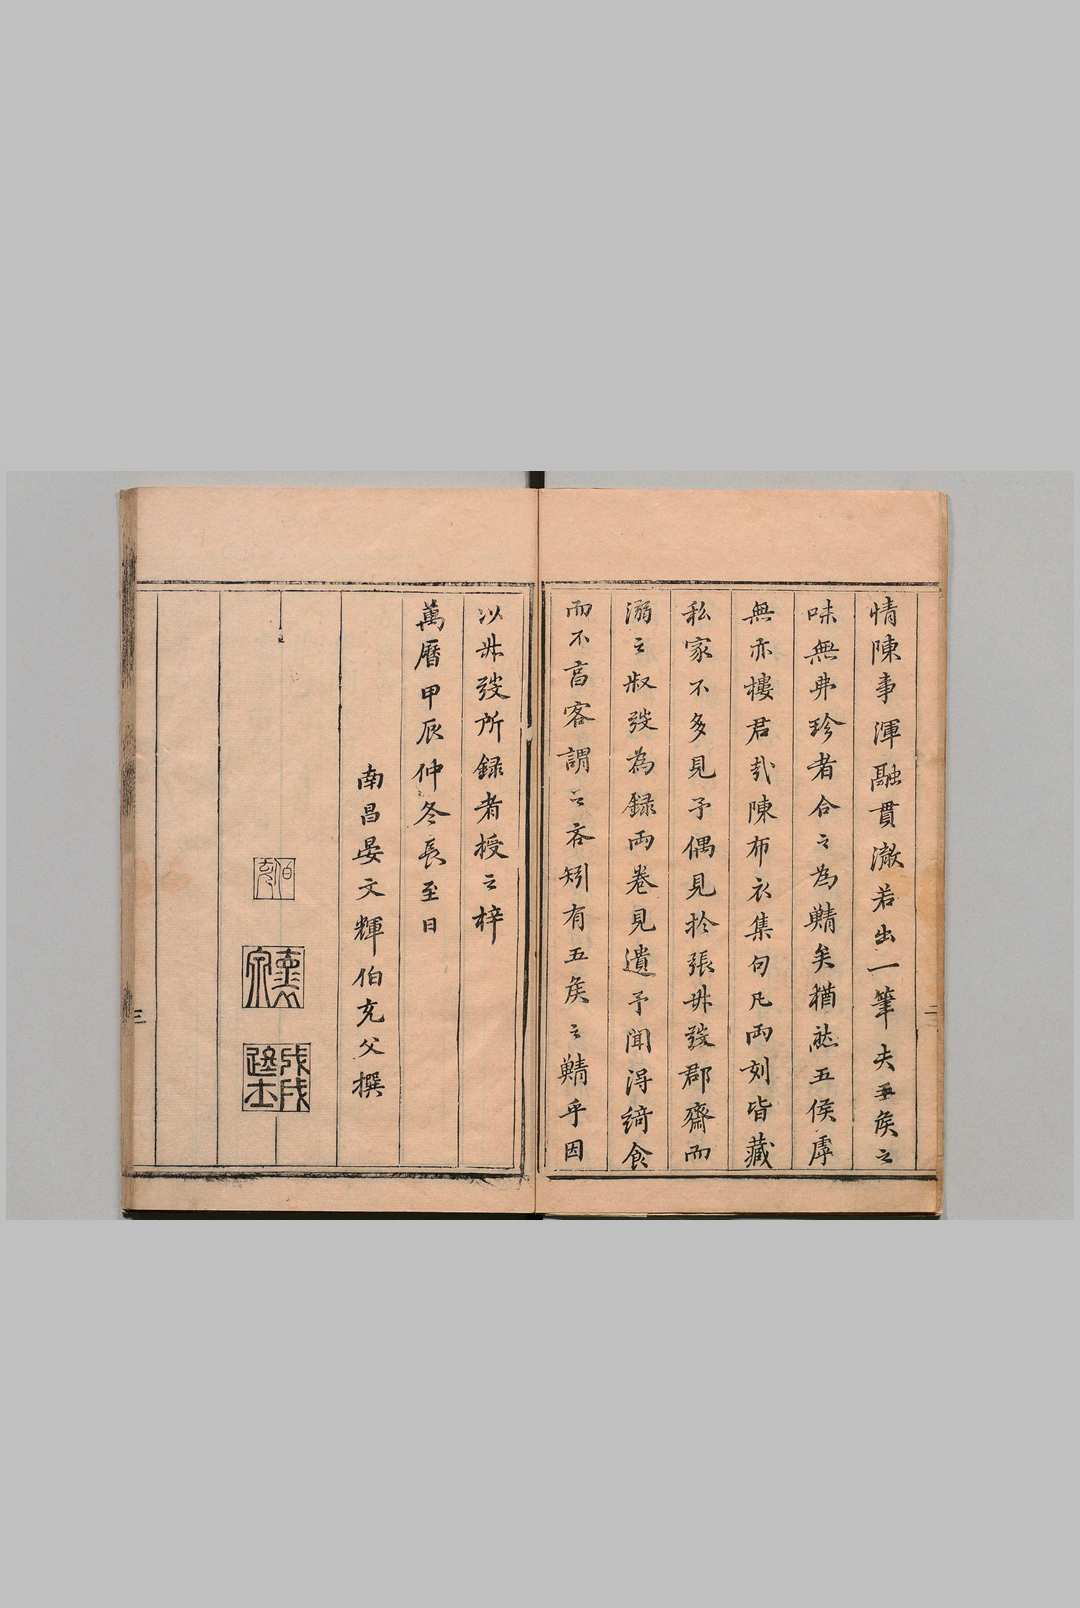 情陳事渾融貫澈若出一筆夫五侯之
味無弗珍者合之為鯖矣猶然五侯虖
無亦樓君哉陳布衣集句凡兩刻皆藏
私家不多見予偶見於張叔發郡齋而
溺之叔發為錄兩卷見遺予聞得綺食
而不言客謂之吝矧有五侯之鯖乎因
以叔發所錄者授之梓
萬曆甲辰仲冬長至日
南昌晏文輝伯充父撰
二
三
戊戌進士